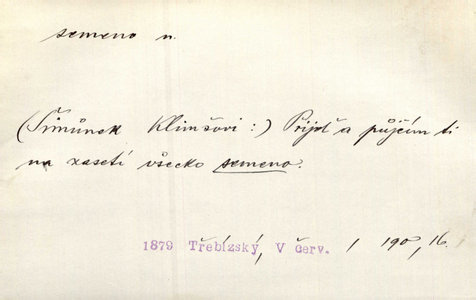 semeno n.
(Šimůnek Klimšovi:) Přijď a půjčím ti
na zasetí všecko semeno.
1879 Třebízský, V červ. / 190, 16.